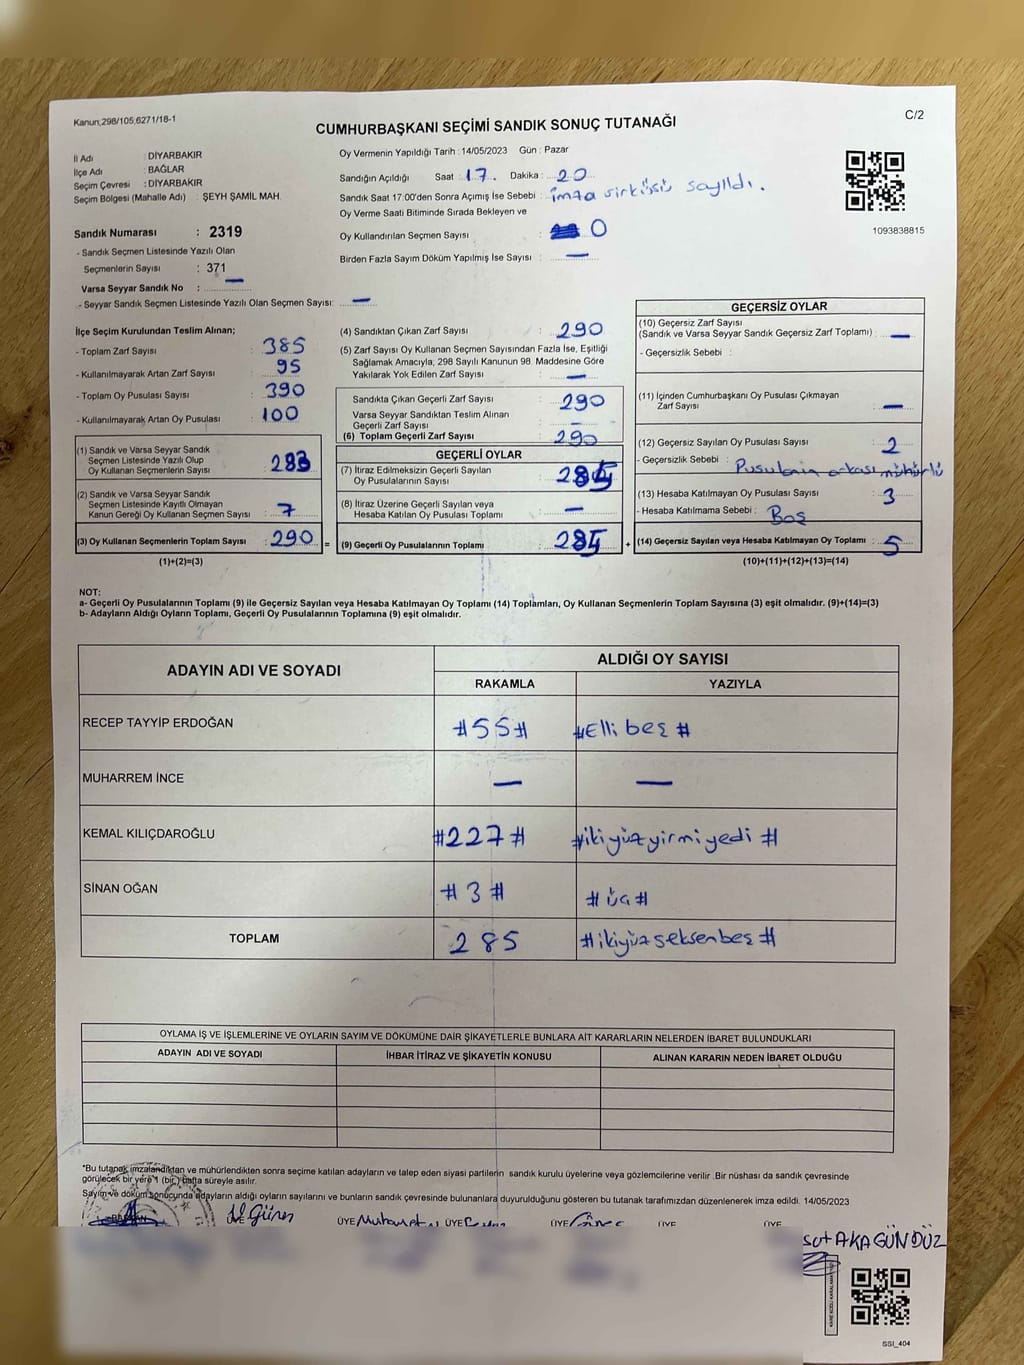 Kanun,298/105,6271/18-1
C/2
CUMHURBAŞKANI SEÇİMİ SANDIK SONUÇ TUTANAĞI
İl Adı : DİYARBAKIR
İlçe Adı : BAĞLAR
Seçim Çevresi : DİYARBAKIR
Seçim Bölgesi (Mahalle Adı) : ŞEYH ŞAMİL MAH.
Sandık Numarası : 2319
- Sandık Seçmen Listesinde Yazılı Olan
Seçmenlerin Sayısı : 371
Varsa Seyyar Sandık No : —
- Seyyar Sandık Seçmen Listesinde Yazılı Olan Seçmen Sayısı: —
Oy Vermenin Yapıldığı Tarih : 14/05/2023 Gün : Pazar
Sandığın Açıldığı Saat : 17. Dakika : 20
Sandık Saat 17:00'den Sonra Açımış İse Sebebi : imza sirküsü sayıldı.
Oy Verme Saati Bitiminde Sırada Bekleyen ve
Oy Kullandırılan Seçmen Sayısı : 0
Birden Fazla Sayım Döküm Yapılmış İse Sayısı : —
1093838815
İlçe Seçim Kurulundan Teslim Alınan;
- Toplam Zarf Sayısı : 385
- Kullanılmayarak Artan Zarf Sayısı : 95
- Toplam Oy Pusulası Sayısı : 390
- Kullanılmayarak Artan Oy Pusulası : 100
(1) Sandık ve Varsa Seyyar Sandık
Seçmen Listesinde Yazılı Olup
Oy Kullanan Seçmenlerin Sayısı : 283
(2) Sandık ve Varsa Seyyar Sandık
Seçmen Listesinde Kayıtlı Olmayan
Kanun Gereği Oy Kullanan Seçmen Sayısı : 7
(3) Oy Kullanan Seçmenlerin Toplam Sayısı : 290 =
(1)+(2)=(3)
(4) Sandıktan Çıkan Zarf Sayısı : 290
(5) Zarf Sayısı Oy Kullanan Seçmen Sayısından Fazla İse, Eşitliği
Sağlamak Amacıyla, 298 Sayılı Kanunun 98. Maddesine Göre
Yakılarak Yok Edilen Zarf Sayısı : —
Sandıkta Çıkan Geçerli Zarf Sayısı : 290
Varsa Seyyar Sandıktan Teslim Alınan
Geçerli Zarf Sayısı : —
(6) Toplam Geçerli Zarf Sayısı : 290
GEÇERLİ OYLAR
(7) İtiraz Edilmeksizin Geçerli Sayılan
Oy Pusulalarının Sayısı : 285
(8) İtiraz Üzerine Geçerli Sayılan veya
Hesaba Katılan Oy Pusulası Toplamı : —
(9) Geçerli Oy Pusulalarının Toplamı : 285 +
GEÇERSİZ OYLAR
(10) Geçersiz Zarf Sayısı
(Sandık ve Varsa Seyyar Sandık Geçersiz Zarf Toplamı) : —
- Geçersizlik Sebebi :
(11) İçinden Cumhurbaşkanı Oy Pusulası Çıkmayan
Zarf Sayısı : —
(12) Geçersiz Sayılan Oy Pusulası Sayısı : 2
- Geçersizlik Sebebi : Pusulanın arkası mühürlü
(13) Hesaba Katılmayan Oy Pusulası Sayısı : 3
- Hesaba Katılmama Sebebi : Boş
(14) Geçersiz Sayılan veya Hesaba Katılmayan Oy Toplamı : 5
(10)+(11)+(12)+(13)=(14)
NOT:
a- Geçerli Oy Pusulalarının Toplamı (9) ile Geçersiz Sayılan veya Hesaba Katılmayan Oy Toplamı (14) Toplamları, Oy Kullanan Seçmenlerin Toplam Sayısına (3) eşit olmalıdır. (9)+(14)=(3)
b- Adayların Aldığı Oyların Toplamı, Geçerli Oy Pusulalarının Toplamına (9) eşit olmalıdır.
ADAYIN ADI VE SOYADI
ALDIĞI OY SAYISI
RAKAMLA YAZIYLA
RECEP TAYYİP ERDOĞAN #55# #Elli beş#
MUHARREM İNCE — —
KEMAL KILIÇDAROĞLU #227# #ikiyüzyirmiyedi#
SİNAN OĞAN #3# #üç#
TOPLAM 285 #ikiyüzseksenbeş#
OYLAMA İŞ VE İŞLEMLERİNE VE OYLARIN SAYIM VE DÖKÜMÜNE DAİR ŞİKAYETLERLE BUNLARA AİT KARARLARIN NELERDEN İBARET BULUNDUKLARI
ADAYIN ADI VE SOYADI İHBAR İTİRAZ VE ŞİKAYETİN KONUSU ALINAN KARARIN NEDEN İBARET OLDUĞU
*Bu tutanak imzalandıktan ve mühürlendikten sonra seçime katılan adayların ve talep eden siyasi partilerin sandık kurulu üyelerine veya gözlemcilerine verilir .Bir nüshası da sandık çevresinde
görülecek bir yere 1 (bir) hafta süreyle asılır.
Sayım ve döküm sonucunda adayların aldığı oyların sayılarını ve bunların sandık çevresinde bulunanlara duyurulduğunu gösteren bu tutanak tarafımızdan düzenlenerek imza edildi. 14/05/2023
BAŞKAN ÜYE ÜYE ÜYE ÜYE ÜYE ÜYE
AKAGÜNDÜZ
SSI_404